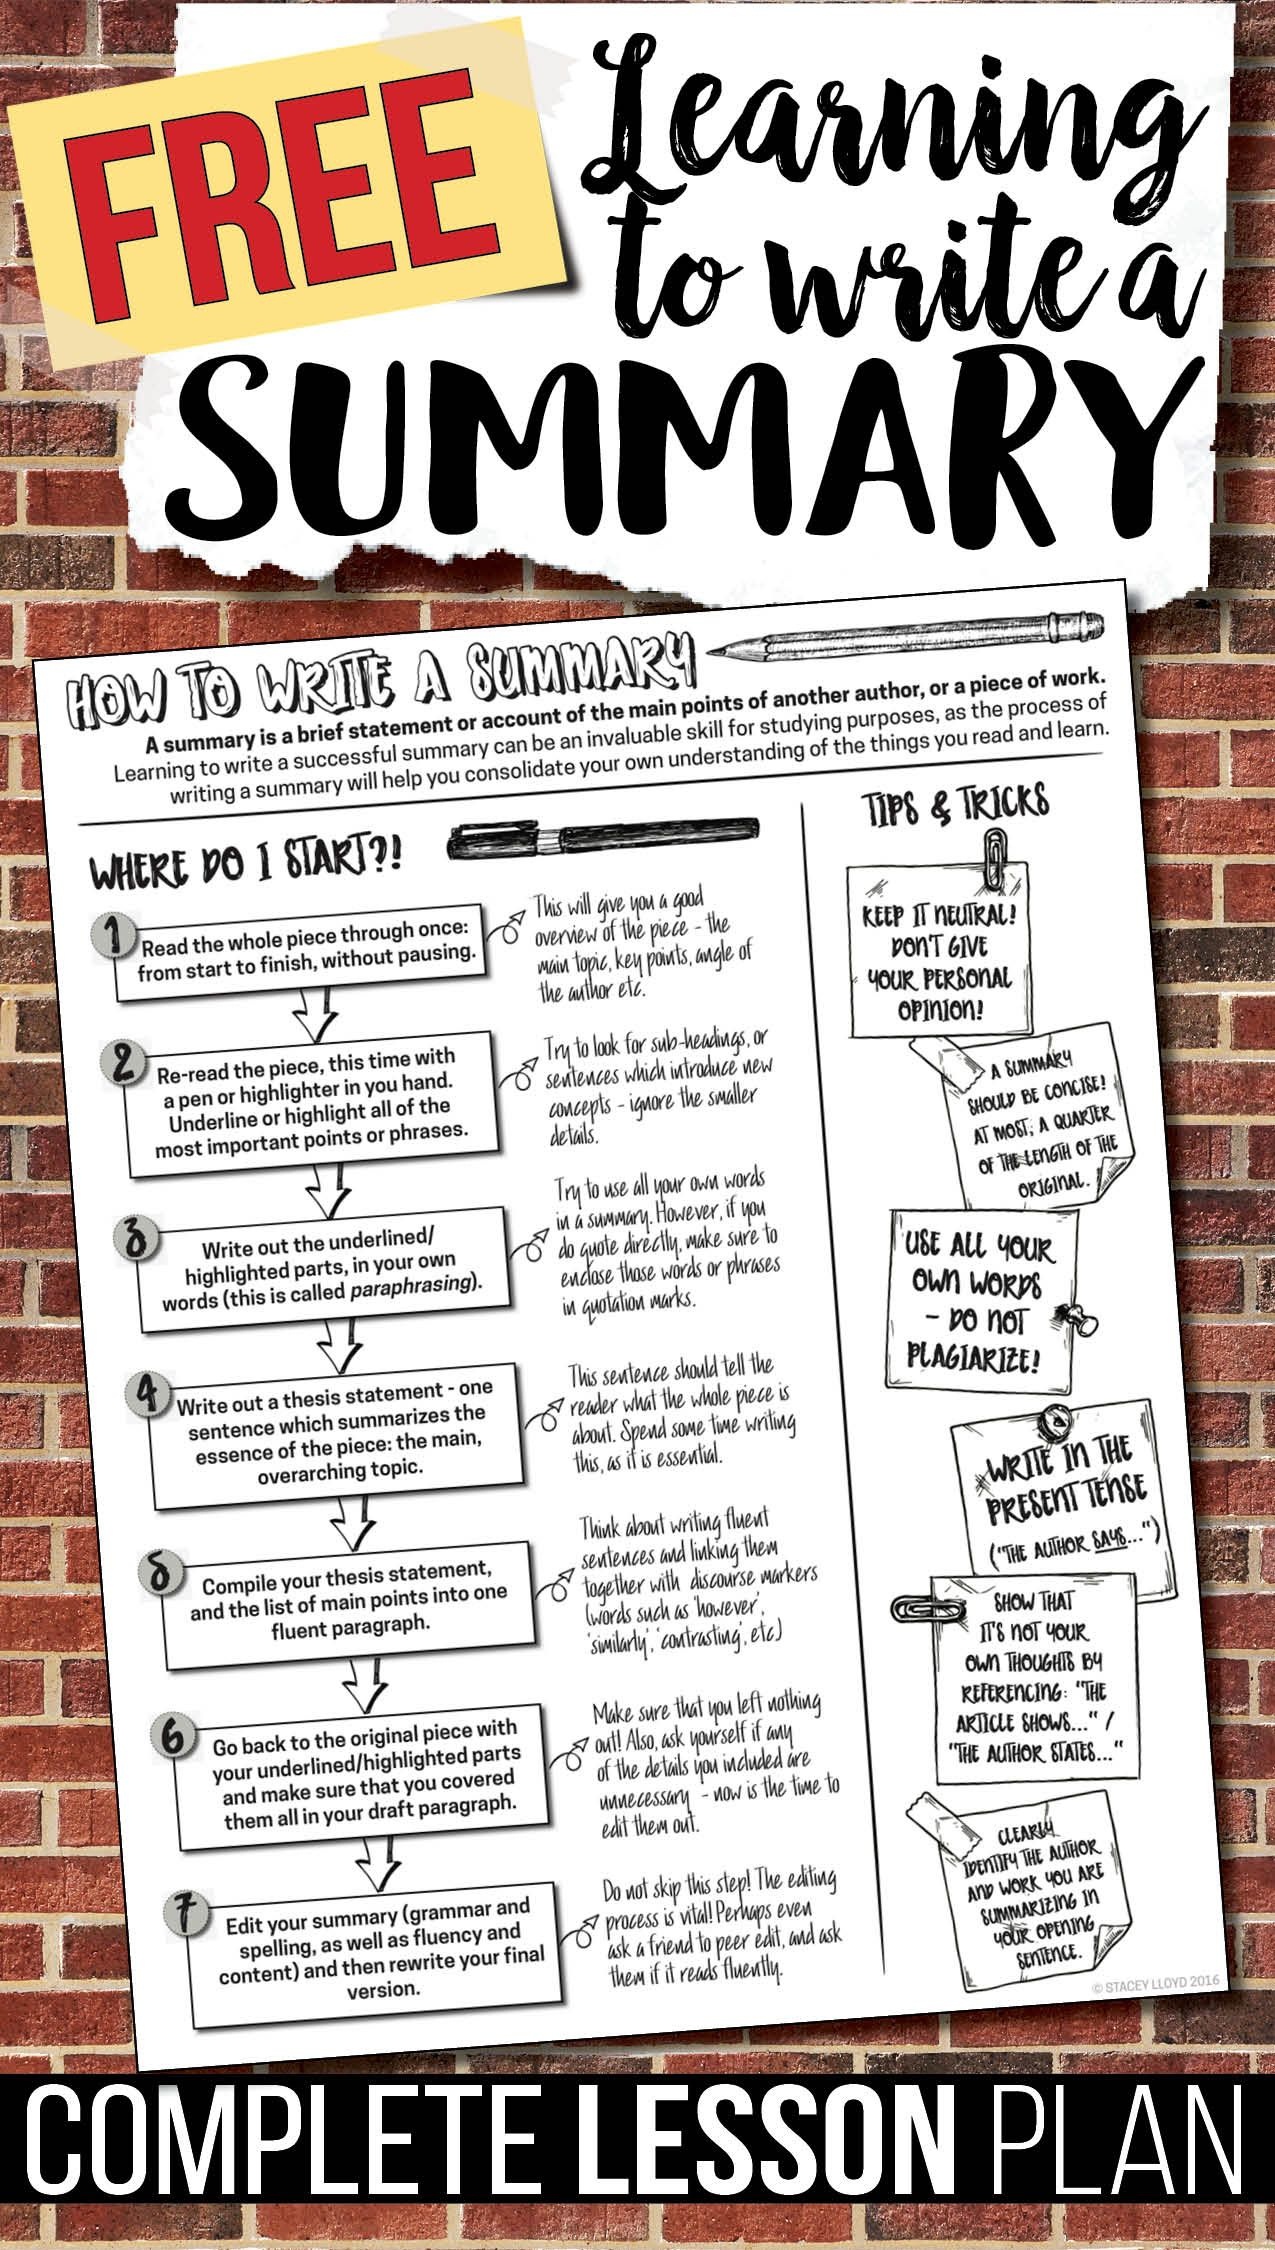 FREE
Learning
to write a
SUMMARY
HOW TO WRITE A SUMMARY
A summary is a brief statement or account of the main points of another author, or a piece of work.
Learning to write a successful summary can be an invaluable skill for studying purposes, as the process of
writing a summary will help you consolidate your own understanding of the things you read and learn.
WHERE DO I START?!
1
Read the whole piece through once:
from start to finish, without pausing.
This will give you a good
overview of the piece - the
main topic, key points, angle of
the author etc.
2
Re-read the piece, this time with
a pen or highlighter in you hand.
Underline or highlight all of the
most important points or phrases.
Try to look for sub-headings, or
sentences which introduce new
concepts - ignore the smaller
details.
3
Write out the underlined/
highlighted parts, in your own
words (this is called paraphrasing).
Try to use all your own words
in a summary. However, if you
do quote directly, make sure to
enclose those words or phrases
in quotation marks.
4
Write out a thesis statement - one
sentence which summarizes the
essence of the piece: the main,
overarching topic.
This sentence should tell the
reader what the whole piece is
about. Spend some time writing
this, as it is essential.
5
Compile your thesis statement,
and the list of main points into one
fluent paragraph.
Think about writing fluent
sentences and linking them
together with discourse markers
(words such as 'however',
'similarly', 'contrasting', etc)
6
Go back to the original piece with
your underlined/highlighted parts
and make sure that you covered
them all in your draft paragraph.
Make sure that you left nothing
out! Also, ask yourself if any
of the details you included are
unnecessary - now is the time to
edit them out.
7
Edit your summary (grammar and
spelling, as well as fluency and
content) and then rewrite your final
version.
Do not skip this step! The editing
process is vital! Perhaps even
ask a friend to peer edit, and ask
them if it reads fluently.
TIPS & TRICKS
KEEP IT NEUTRAL!
DON'T GIVE
YOUR PERSONAL
OPINION!
A SUMMARY
SHOULD BE CONCISE!
AT MOST, A QUARTER
OF THE LENGTH OF THE
ORIGINAL.
USE ALL YOUR
OWN WORDS
- DO NOT
PLAGIARIZE!
WRITE IN THE
PRESENT TENSE
("THE AUTHOR SAYS...")
SHOW THAT
IT'S NOT YOUR
OWN THOUGHTS BY
REFERENCING: "THE
ARTICLE SHOWS..." /
"THE AUTHOR STATES..."
CLEARLY
IDENTIFY THE AUTHOR
AND WORK YOU ARE
SUMMARIZING IN
YOUR OPENING
SENTENCE.
© STACEY LLOYD 2016
COMPLETE LESSON PLAN